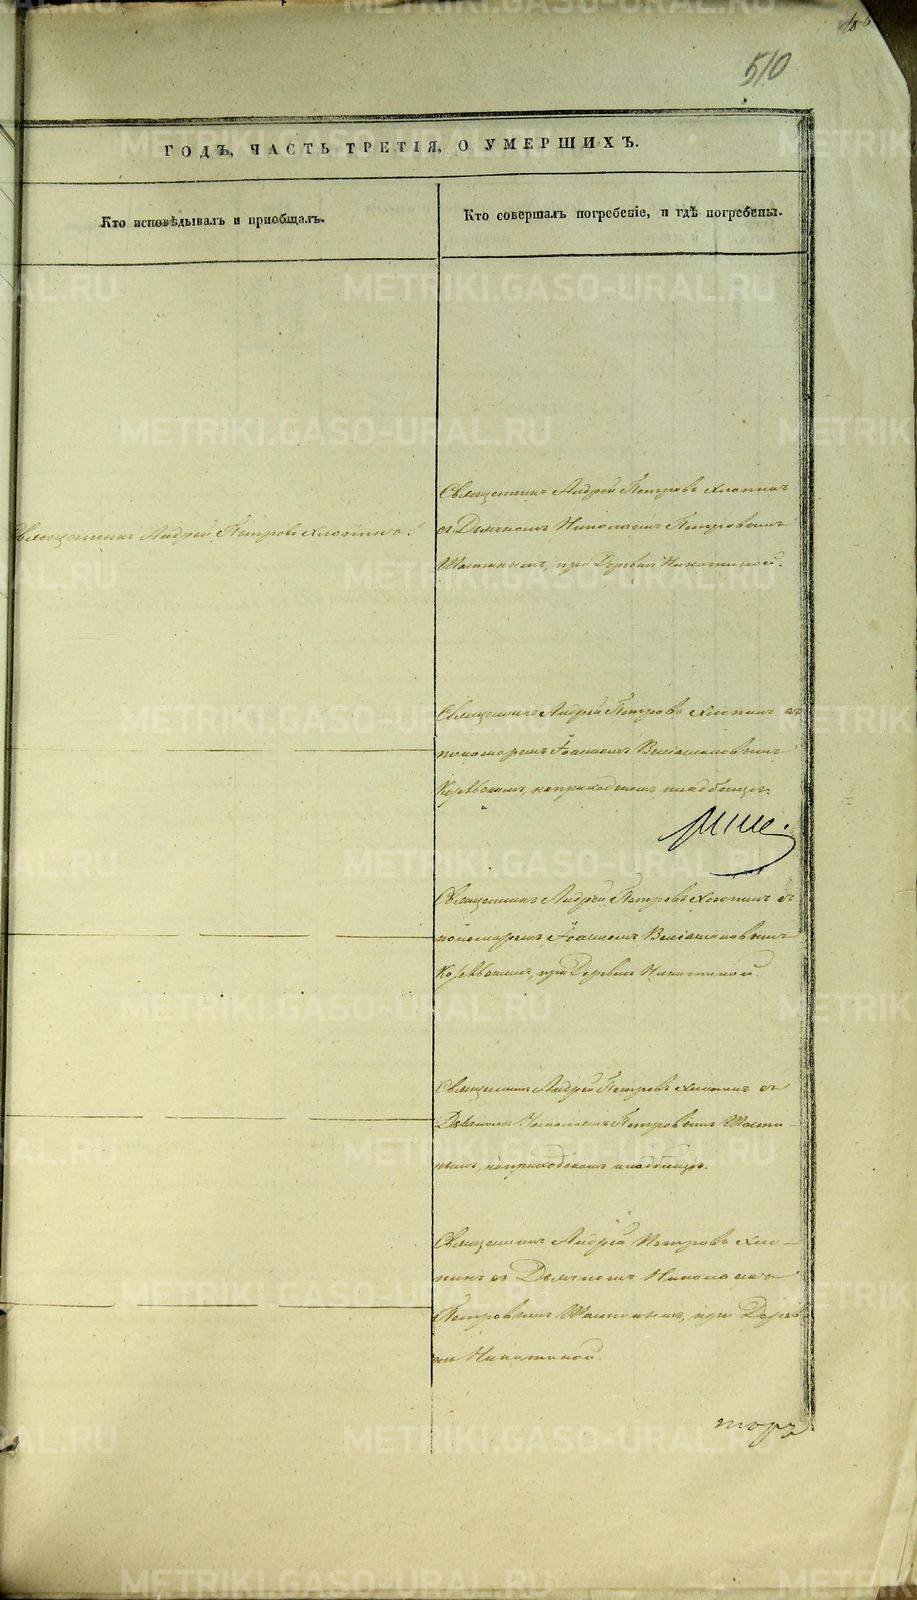 510
ГОДЪ, ЧАСТЬ ТРЕТІЯ, О УМЕРШИХЪ.
Кто исповѣдывалъ и пріобщалъ.
Кто совершалъ погребеніе, и гдѣ погребены.
Священникъ Андрей Петровъ Хлопинъ
съ Дьячкомъ Николаемъ Петровымъ
при Деревнѣ Никитиной.
Священникъ Андрей Петровъ Хлопинъ.
Священникъ Андрей Петровъ Хлопинъ съ
пономаремъ Іоанномъ
на приходскомъ кладбищѣ.
Священникъ Андрей Петровъ Хлопинъ съ
пономаремъ Іоанномъ
при Деревнѣ Никитиной.
Священникъ Андрей Петровъ Хлопинъ съ
Дьячкомъ Николаемъ Петровымъ
на приходскомъ кладбищѣ.
Священникъ Андрей Петровъ Хло-
пинъ съ Дьячкомъ Николаемъ
Петровымъ при Дерев-
нѣ Никитиной.
METRIKI.GASO-URAL.RU